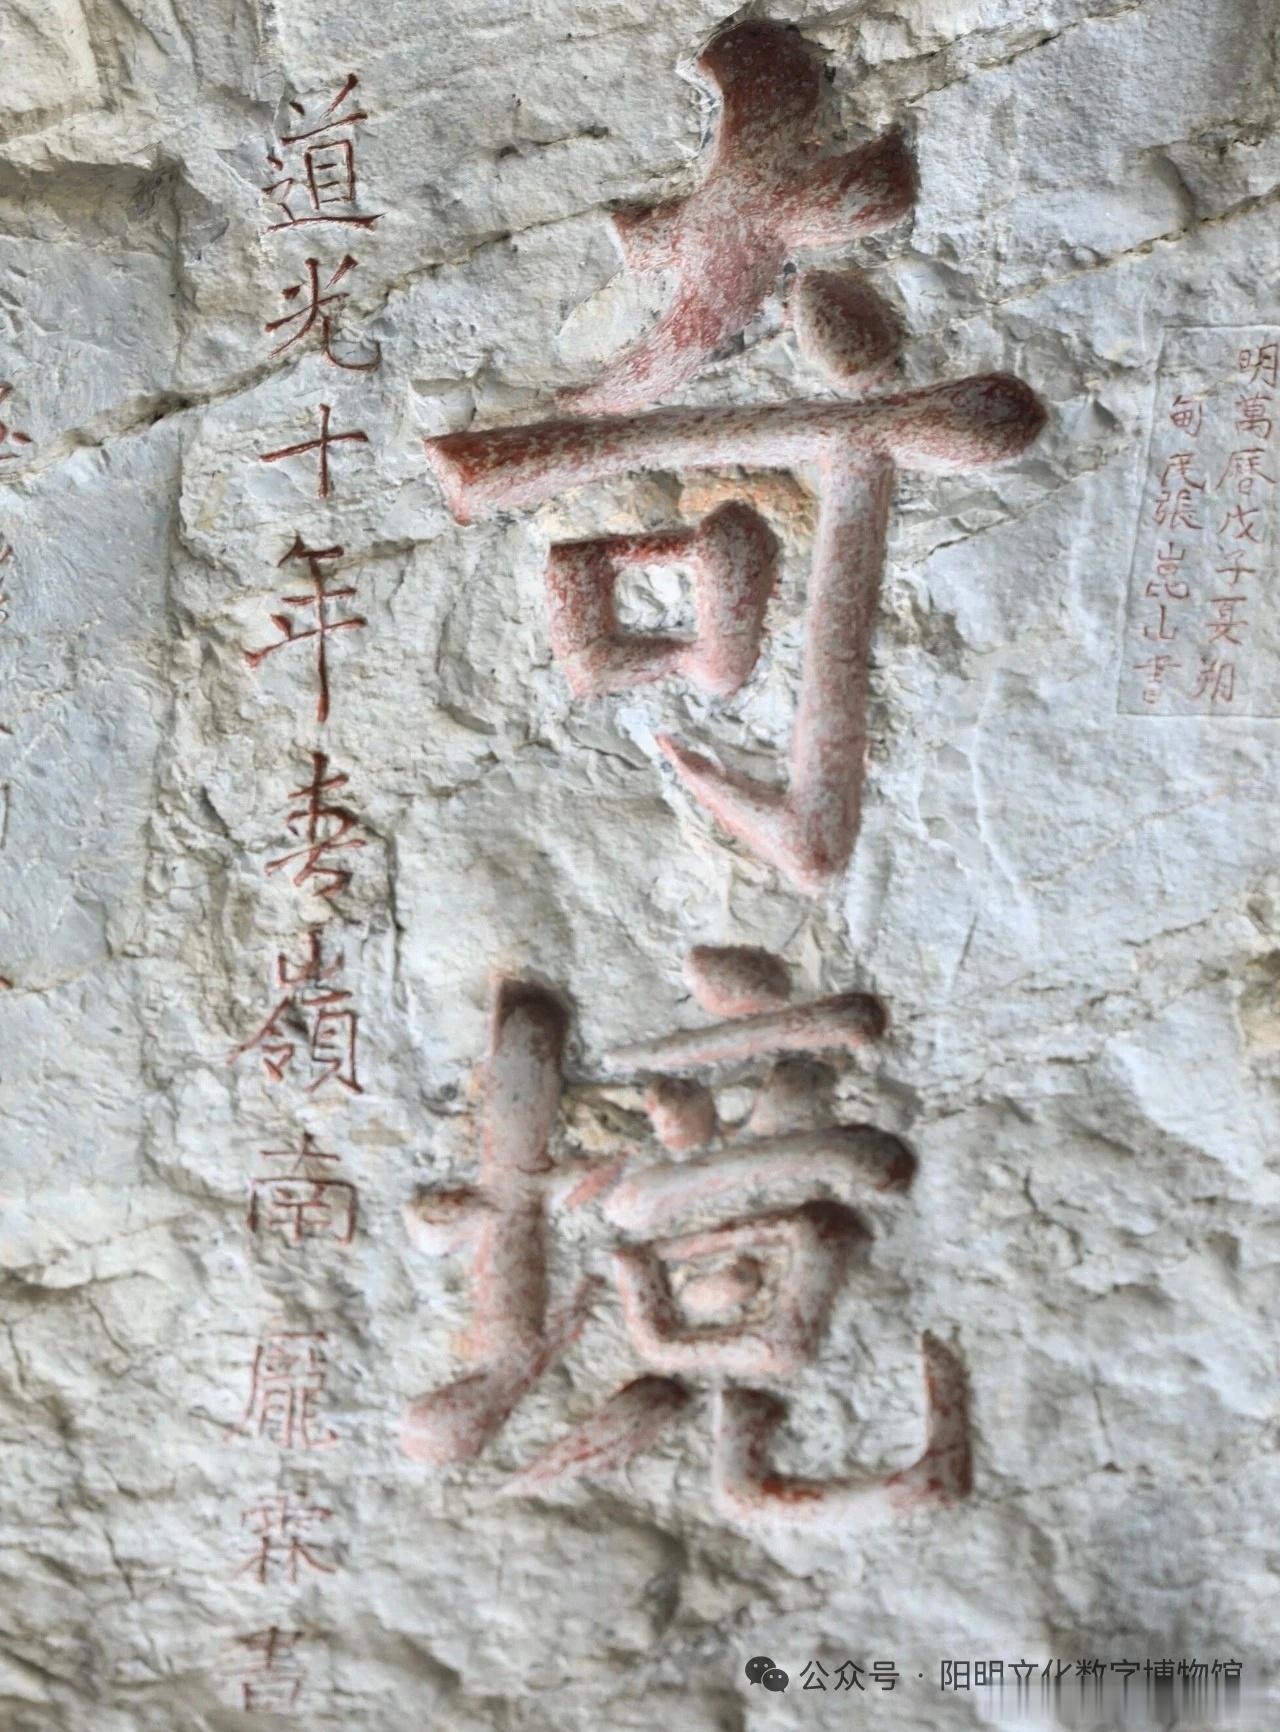 明萬曆戊子夏朔
甸民張崑山書
奇境
道光十年春嶺南龐霖書
公众号 · 阳明文化数字博物馆